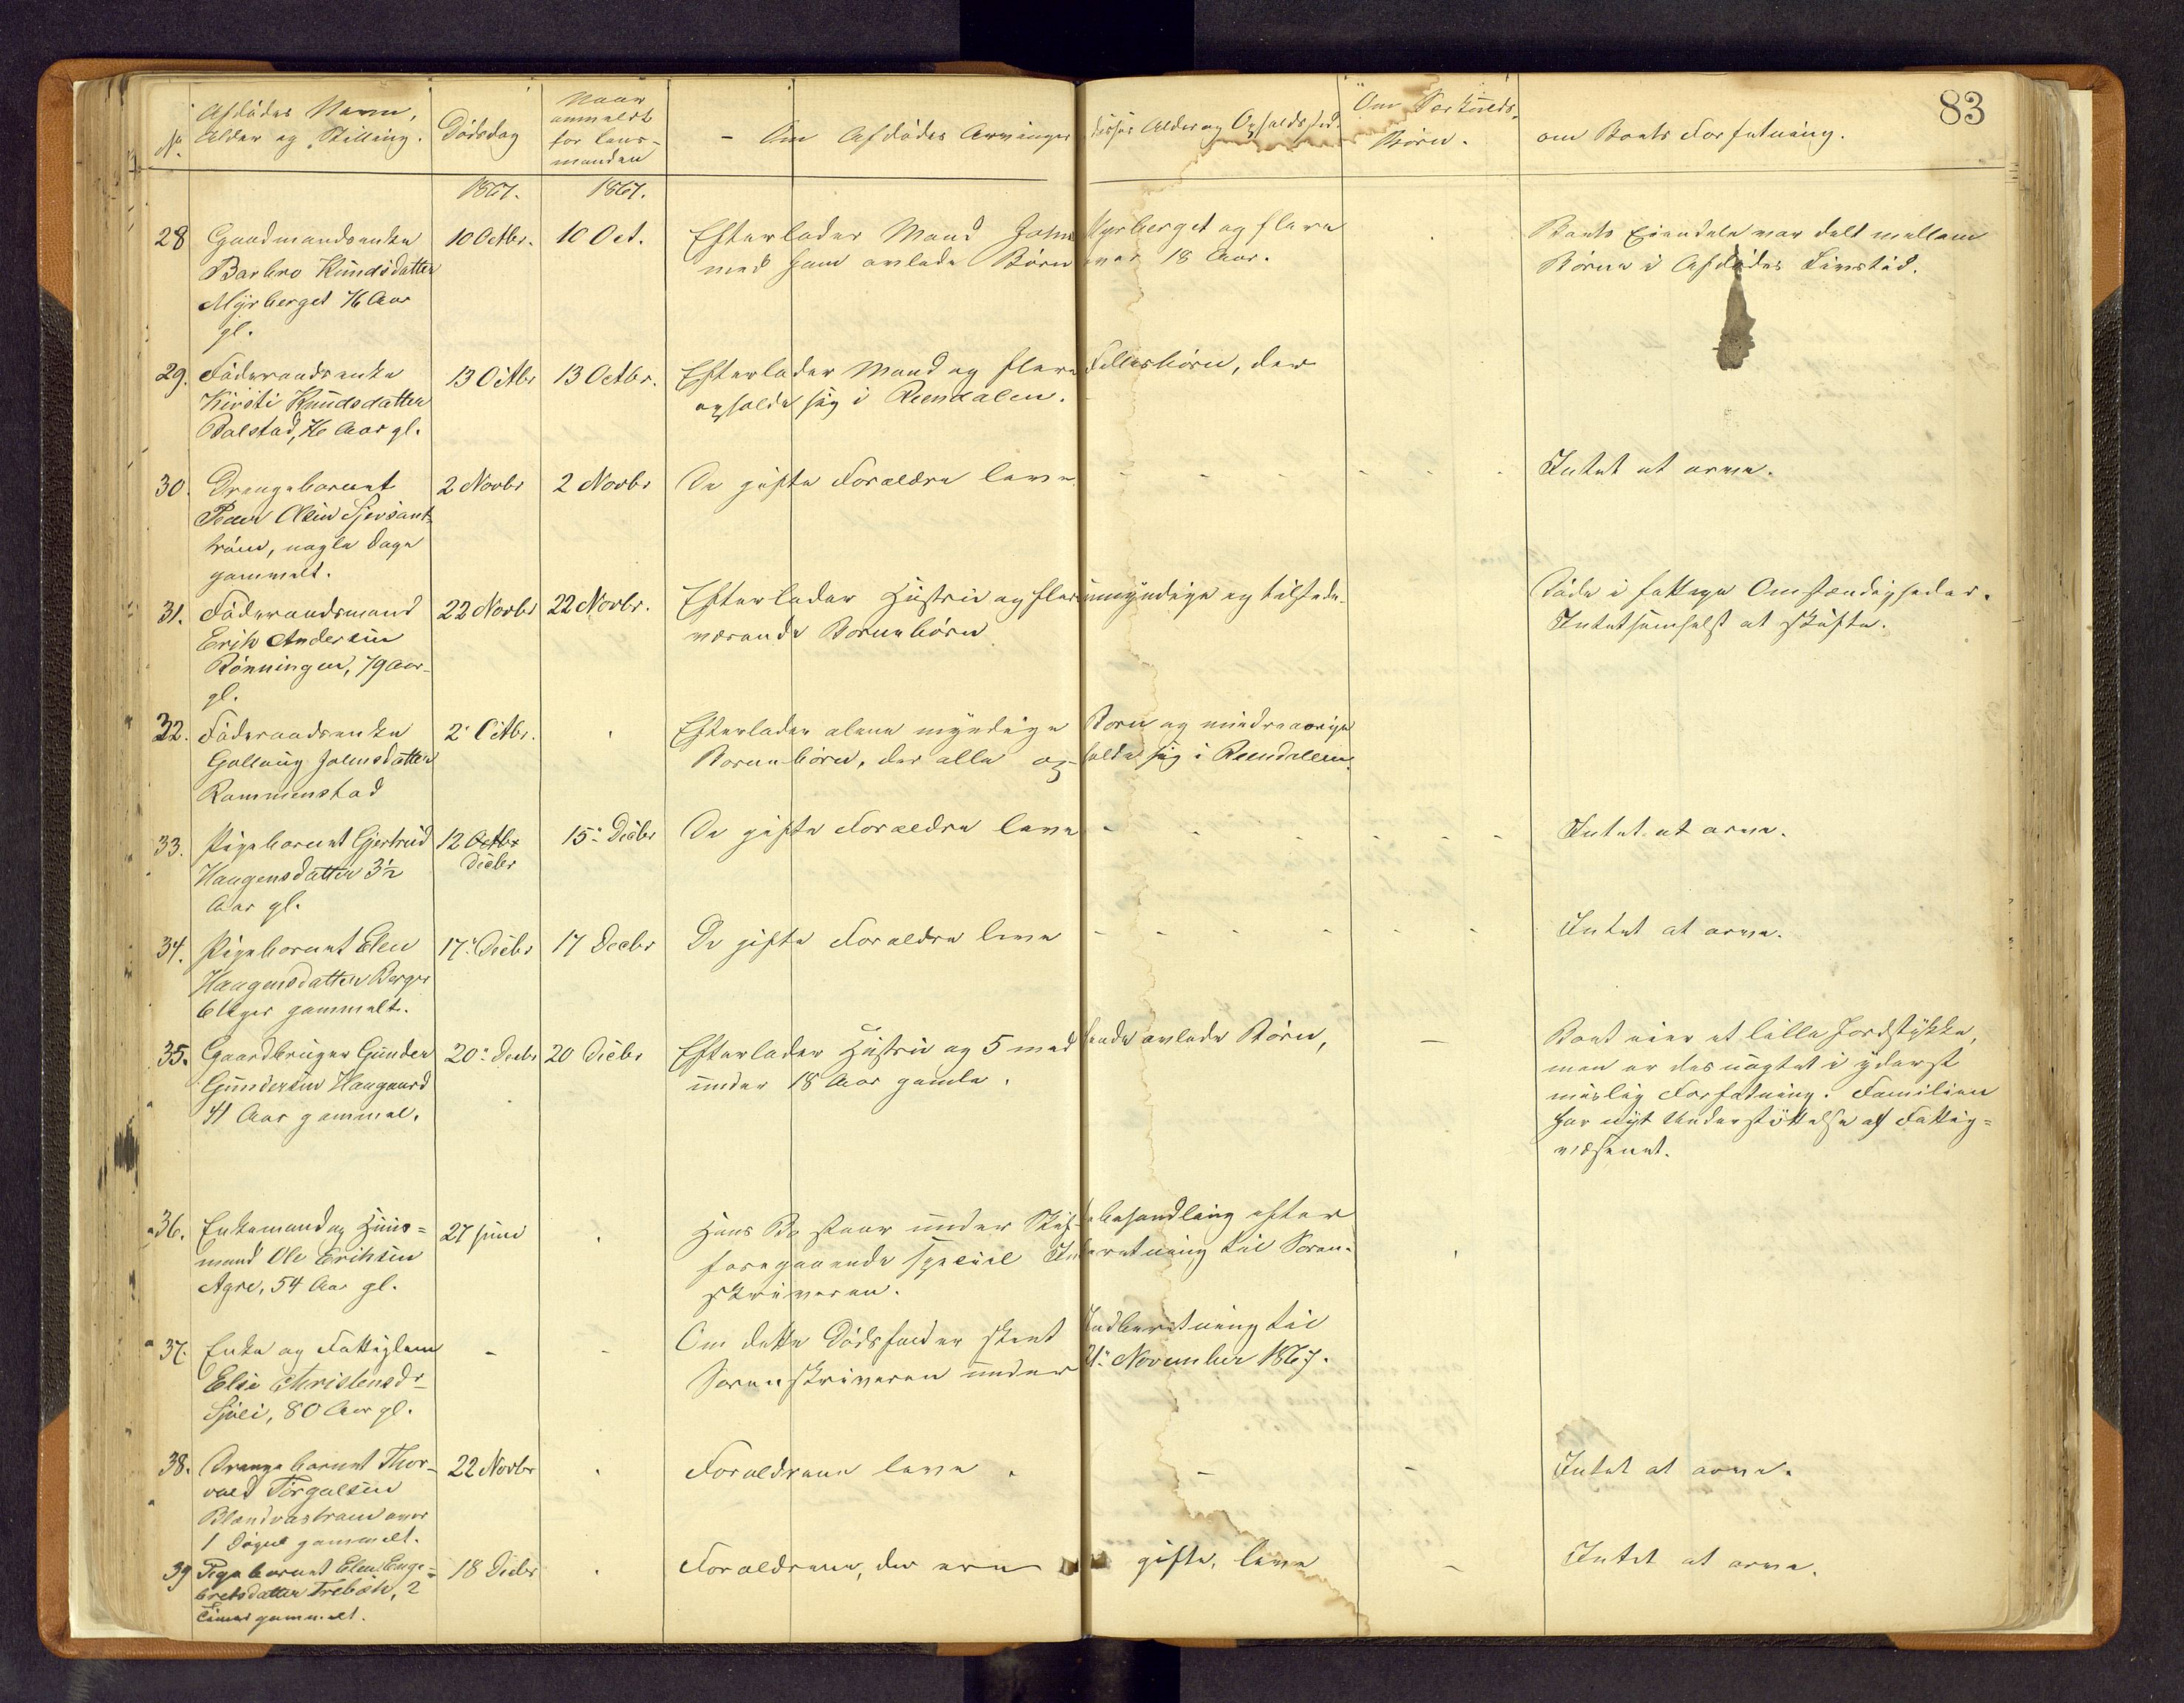 83
No.
Afdødes Navn,
Alder og Stilling.
Dødsdag
Naar
anmeldt
for Lens-
manden
- Om Afdødes Arvinger disses Alder og Opholdssted.
Om Særkulds-
Børn.
om Boets Forfatning.
1867. 1867.
28 Gaardmandsenke 10 Octbr. 10 Oct. Efterlader Mand John Myrberget og flere Boets Eiendele var delt mellem
Barbro Knudsdatter med ham avlede Børn over 18 Aar. Børnene i Afdødes Livstid.
Myrberget 76 Aar
gl.
29. Føderaadsenke 13 Octbr 13 Octbr. Efterlader Mand og flere Fællesbørn, der
Kirsti Knudsdatter opholde sig i Rendalen.
Balstad, 76 Aar gl.
30. Drengebarnet 2 Novbr 2 Novbr De gifte Forældre leve - - - - - - Intet at arve.
Peder Olsen
nogle Dage
gammelt.
31. Føderaadsmand 22 Novbr 22 Novbr. Efterlader Hustru og flere umyndige og tilstede- Døde i fattige Omstændigheder.
Erik Andersen værende Børnebørn Intetsomhelst at skifte.
Rønningen, 79 Aar
gl.
32. Føderaadsenke 2. Octbr. Efterlader alene myndige Børn og mindreaarige
Gollaug Johnsdatter Børnebørn, der alle opholde sig i Rendalen.
Rommenstad
33. Pigebarnet Gjertrud 12 Octbr 15. Decbr De gifte Forældre leve - - - - - - Intet at arve.
Haagensdatter 3½ Decbr
Aar gl.
34. Pigebarnet Elen 17. Decbr 17 Decbr De gifte Forældre leve - - - - - - Intet at arve.
Haagensdatter Berger
6 Uger gammelt.
35. Gaardbruger Gunder 20. Decbr 20 Decbr Efterlader Hustru og 5 med hende avlede Børn, - Boet eier et lille Jordstykke,
Gundersen Haugaard under 18 Aar gamle. men er desuagtet i yderst
41 Aar gammel. mislig Forfatning. Familien
har nydt Understøttelse af Fattig=
væsenet.
36. Enkemand og Huus= 27 Juni Hans Bo staar under Skiftebehandling efter
mand Ole Eriksen foregaaende speciel Indberetning til Soren-
Agre, 54 Aar gl. skriveren.
37. Enke og Fattiglem - - Om dette Dødsfald er skeet Indberetning til
Elsi Christensdr Sorenskriveren under 21. November 1867.
Sjøli, 80 Aar gl.
38. Drengebarnet Thor- 22 Novbr Forældrene leve. - - Intet at arve.
vald Torgalsen
1 Døgn gammelt.
39 Pigebarnet Elen Enge- 18 Decbr Forældrene, der ere gifte, leve - Intet at arve.
bretsdatter Trebæk, 2
Timer gammelt.